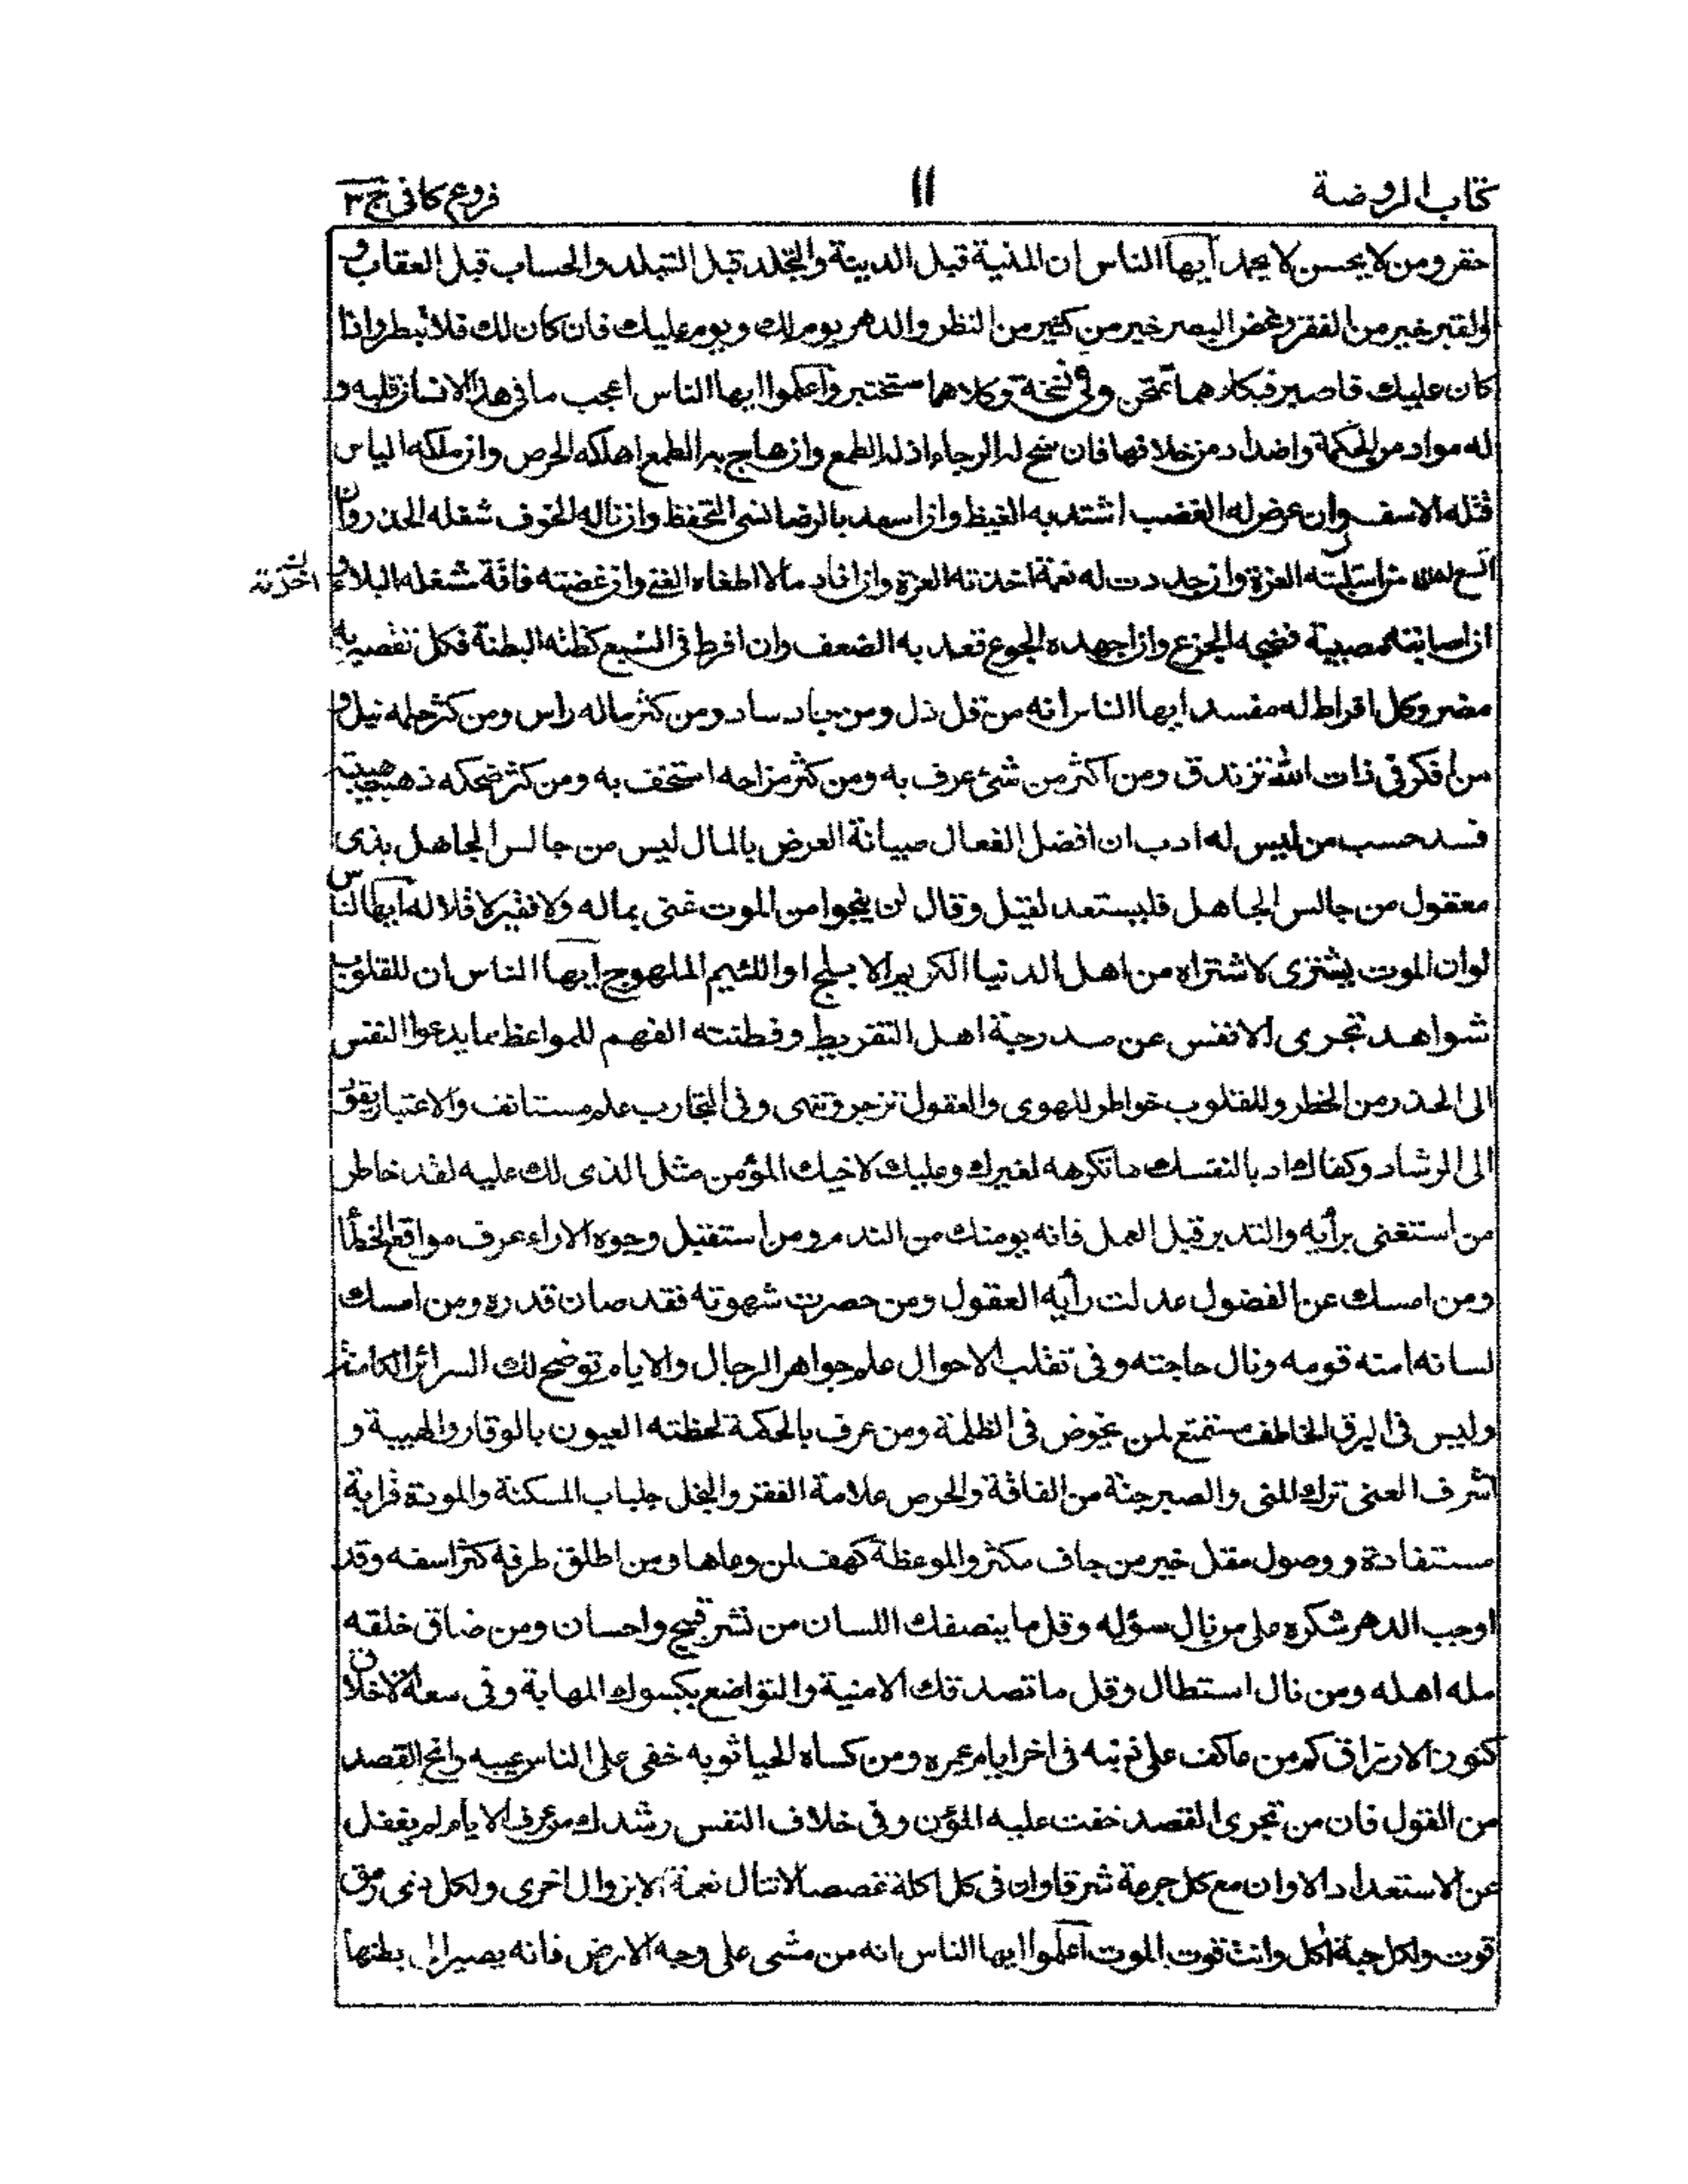 كتاب الروضة ١١ فروع كافى ج ٣
حقر ومن لا يحسن لا يحمد ايها الناس ان المنية قبل الدينة والتجلد قبل التبلد والحساب قبل العقاب و
القبر خير من الفقر وغض البصر خير من كثير من النظر والدهر يوم لك ويوم عليك فان كان لك فلا تبطر واذا
كان عليك فاصبر فبكلاهما تمتحن وفى نسخة وكلاهما ستختبر واعلموا ايها الناس اعجب ما فى هذا الانسان قلبه و
له مواد من الحكمة واضداد من خلافها فان سنح له الرجاء اذله الطمع وان هاج به الطمع اهلكه الحرص وان ملكه الياس
قتله الاسف وان عرض له الغضب اشتد به الغيظ وان اسعد بالرضا نسى التحفظ وان ناله الخوف شغله الحذر وان
اتسع له الامن استلبته العزة وان جددت له نعمة اخذته العزة وان افاد مالا اطغاه الغنى وان عضته فاقة شغله البلاء و
اخذته
ان اصابته مصيبة فضحه الجزع وان اجهده الجوع قعد به الضعف وان افرط فى الشبع كظته البطنة فكل تقصير به
مضر وكل افراط له مفسد ايها الناس انه من قل ذل ومن جاد ساد ومن كثر ماله راس ومن كثر حلمه نبل و
من افكر فى ذات الله تزندق ومن اكثر من شئ عرف به ومن كثر مزاحه استخف به ومن كثر ضحكه ذهبت هيبته
فسد حسب من ليس له ادب ان افضل الفعال صيانة العرض بالمال ليس من جالس الجاهل بذى
معقول من جالس الجاهل فليستعد لقيل وقال لن ينجوا من الموت غنى بماله ولا فقير لا قلاله ايها الناس
لو ان الموت يشترى لاشتراه من اهل الدنيا الكريم الابلج او اللئيم الملهوج ايها الناس ان للقلوب
شواهد تجرى الانفس عن مدرجة اهل التفريط وفطنته الفهم للمواعظ ما يدعوا النفس
الى الحذر من الخطر وللقلوب خواطر للهوى والعقول تزجر وتنهى وفى التجارب علم مستانف والاعتبار يقود
الى الرشاد وكفاك ادبا لنفسك ما تكرهه لغيرك وعليك لاخيك المؤمن مثل الذى لك عليه لقد خاطر
من استغنى برأيه والتدبر قبل العمل فانه يومنك من الندم ومن استقبل وجوه الاراء عرف مواقع الخطأ
ومن امسك عن الفضول عدلت رأيه العقول ومن حصرت شهوته فقد صان قدره ومن امسك
لسانه امنه قومه ونال حاجته وفى تقلب الاحوال علم جواهر الرجال والايام توضح لك السرائر الكامنة
وليس فى البرق الخاطف مستمتع لمن يخوض فى الظلمة ومن عرف بالحكمة لحظته العيون بالوقار والهيبة و
اشرف الغنى ترك المنى والصبر جنة من الفاقة والحرص علامة الفقر والبخل جلباب المسكنة والمودة قرابة
مستفادة ووصول مقل خير من جاف مكثر والموعظة كهف لمن وعاها ومن اطلق طرفه كثر اسفه وقد
اوجب الدهر شكره على من نال سؤله وقل ما ينصفك اللسان من نشر قبيح واحسان ومن ضاق خلقه
مله اهله ومن نال استطال وقل ما تصدقك الامنية والتواضع يكسوك المهابة وفى سعة الاخلاق
كنوز الارزاق كم من عاكف على ذنبه فى اخر ايام عمره ومن كساه الحيا ثوبه خفى على الناس عيبه وانح القصد
من القول فان من تحرى القصد خفت عليه المؤن وفى خلاف النفس رشدك من عرف الايام لم يغفل
عن الاستعداد الا وان مع كل جرعة شرقا وان فى كل اكلة غصصا لا تنال نعمة الا بزوال اخرى ولكل ذى رمق
قوت ولكل حبة اكل وانت قوت الموت اعلموا ايها الناس انه من مشى على وجه الارض فانه يصير الى بطنها